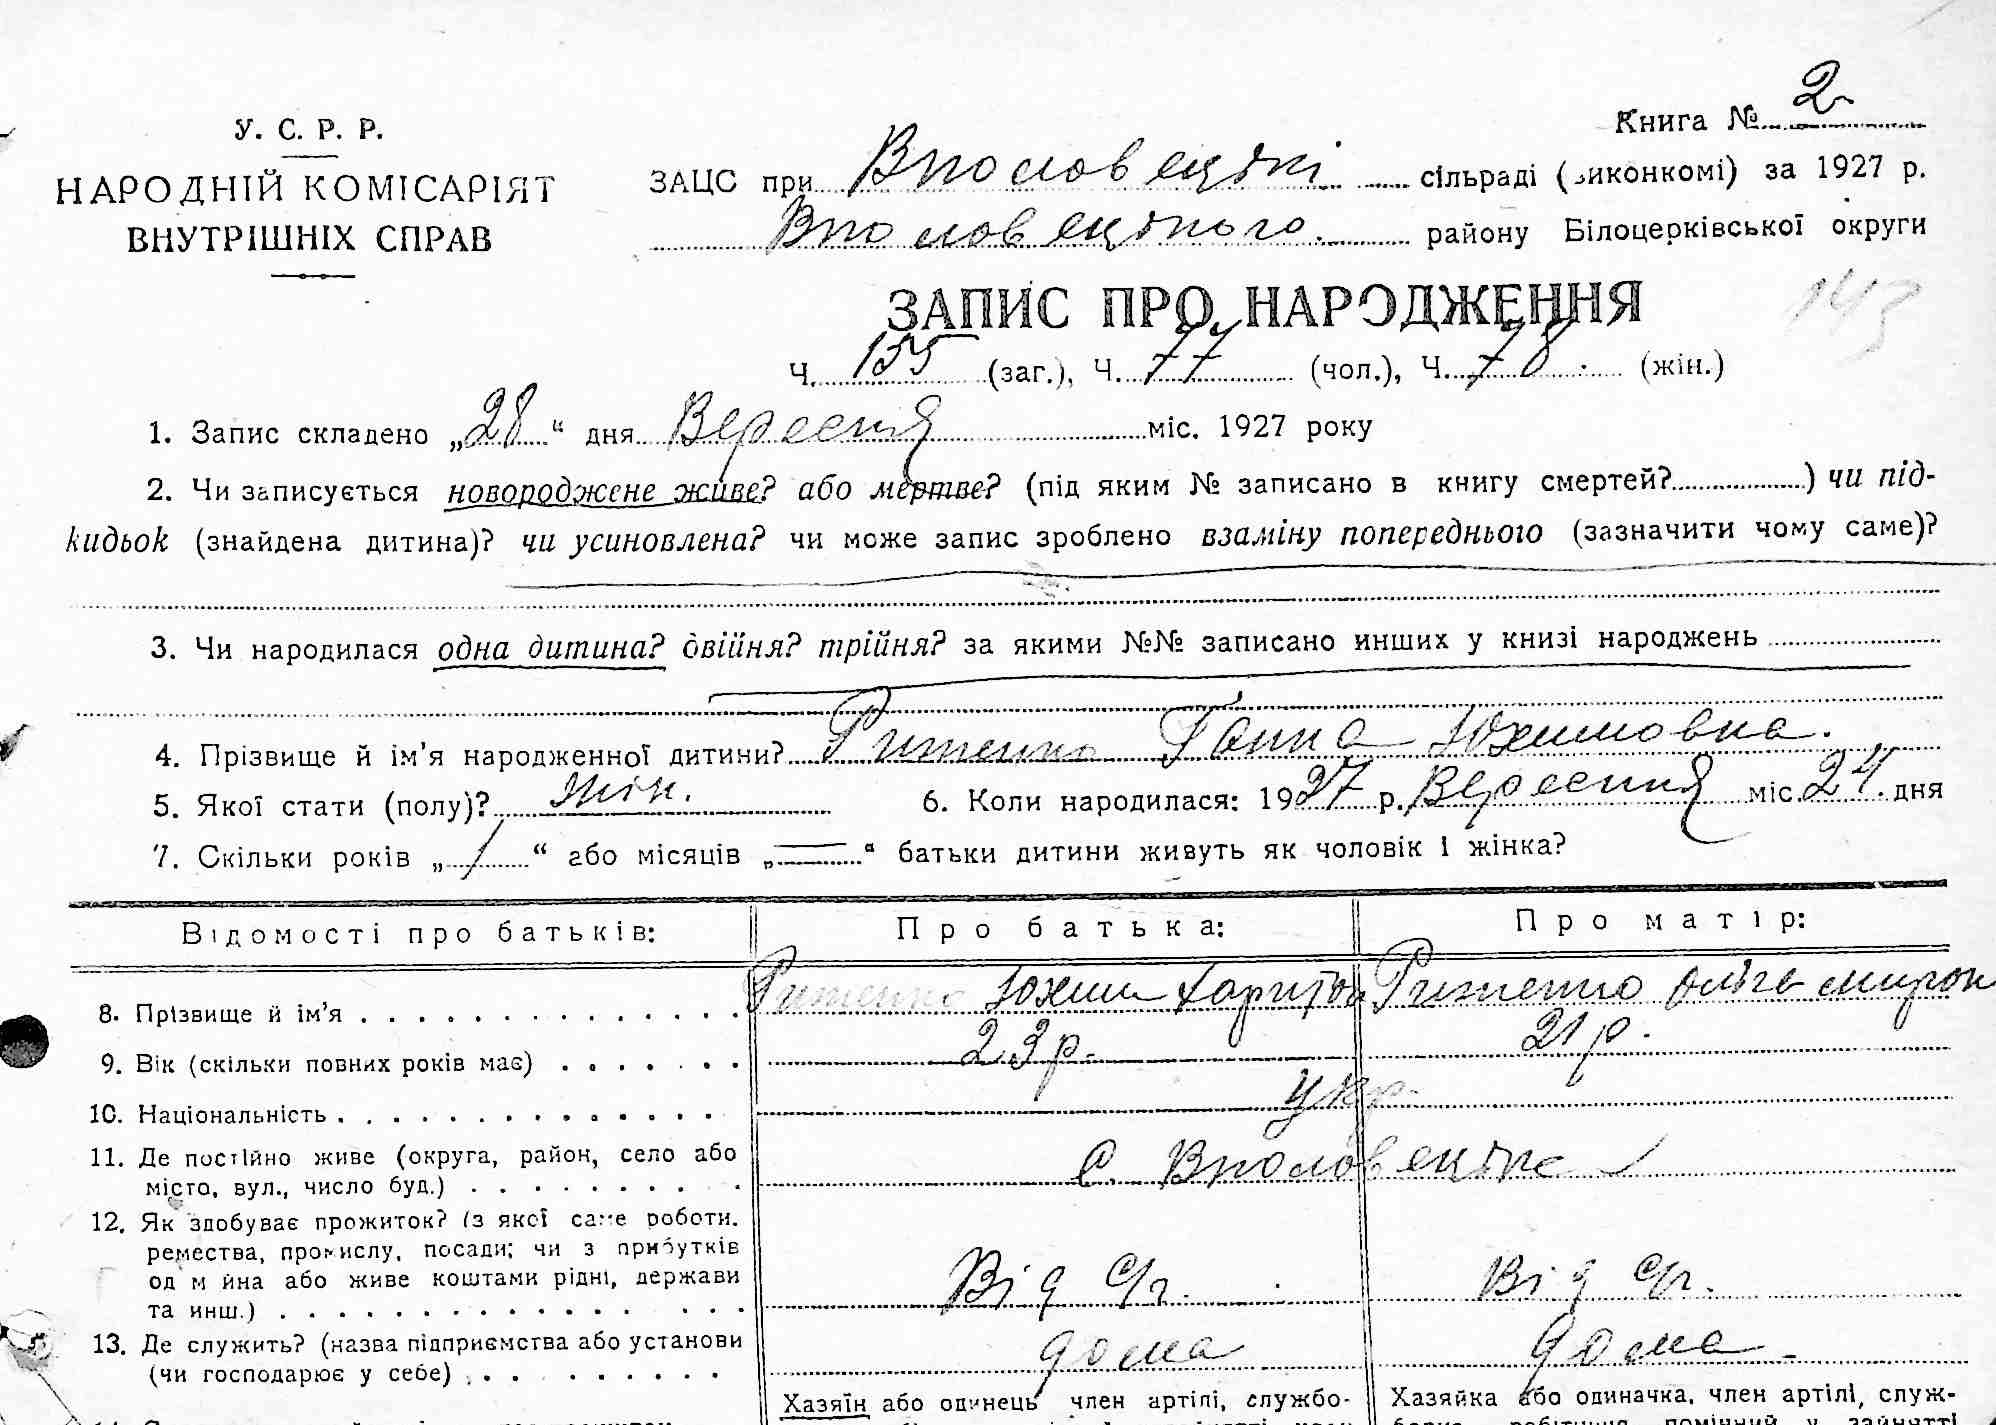 Книга № 2
У. С. Р. Р.
НАРОДНІЙ КОМІСАРІЯТ
ВНУТРІШНІХ СПРАВ
ЗАЦС при сільраді (виконкомі) за 1927 р.
району Білоцерківської округи
ЗАПИС ПРО НАРОДЖЕННЯ
143
Ч. 155 (заг.), Ч. 77 (чол.), Ч. 78 (жін.)
1. Запис складено „28“ дня Вересня міс. 1927 року
2. Чи записується новороджене живе? або мертве? (під яким № записано в книгу смертей? ) чи під-
кидьок (знайдена дитина)? чи усиновлена? чи може запис зроблено взаміну попереднього (зазначити чому саме)?
3. Чи народилася одна дитина? двійня? трійня? за якими №№ записано инших у книзі народжень
4. Прізвище й ім'я народженної дитини? Ганна Юхимовна.
5. Якої стати (полу)? жін. 6. Коли народилася: 1927 р. Вересня міс. 24 дня
7. Скільки років „1“ або місяців „—“ батьки дитини живуть як чоловік і жінка?
Відомості про батьків: Про батька: Про матір:
8. Прізвище й ім'я Юхим Харитон Ольга Мирон
9. Вік (скільки повних років має) 23 р. 21 р.
10. Національність укр.
11. Де постійно живе (округа, район, село або
місто, вул., число буд.) с.
12. Як здобуває прожиток? (з якої саме роботи.
ремества, промислу, посади; чи з прибутків
од м йна або живе коштами рідні, держави
та инш.) Від с/г. Від с/г.
13. Де служить? (назва підприємства або установи
(чи господарює у себе) дома дома
Хазяїн або одинець член артілі, службо- Хазяйка або одиначка, член артілі, служ-